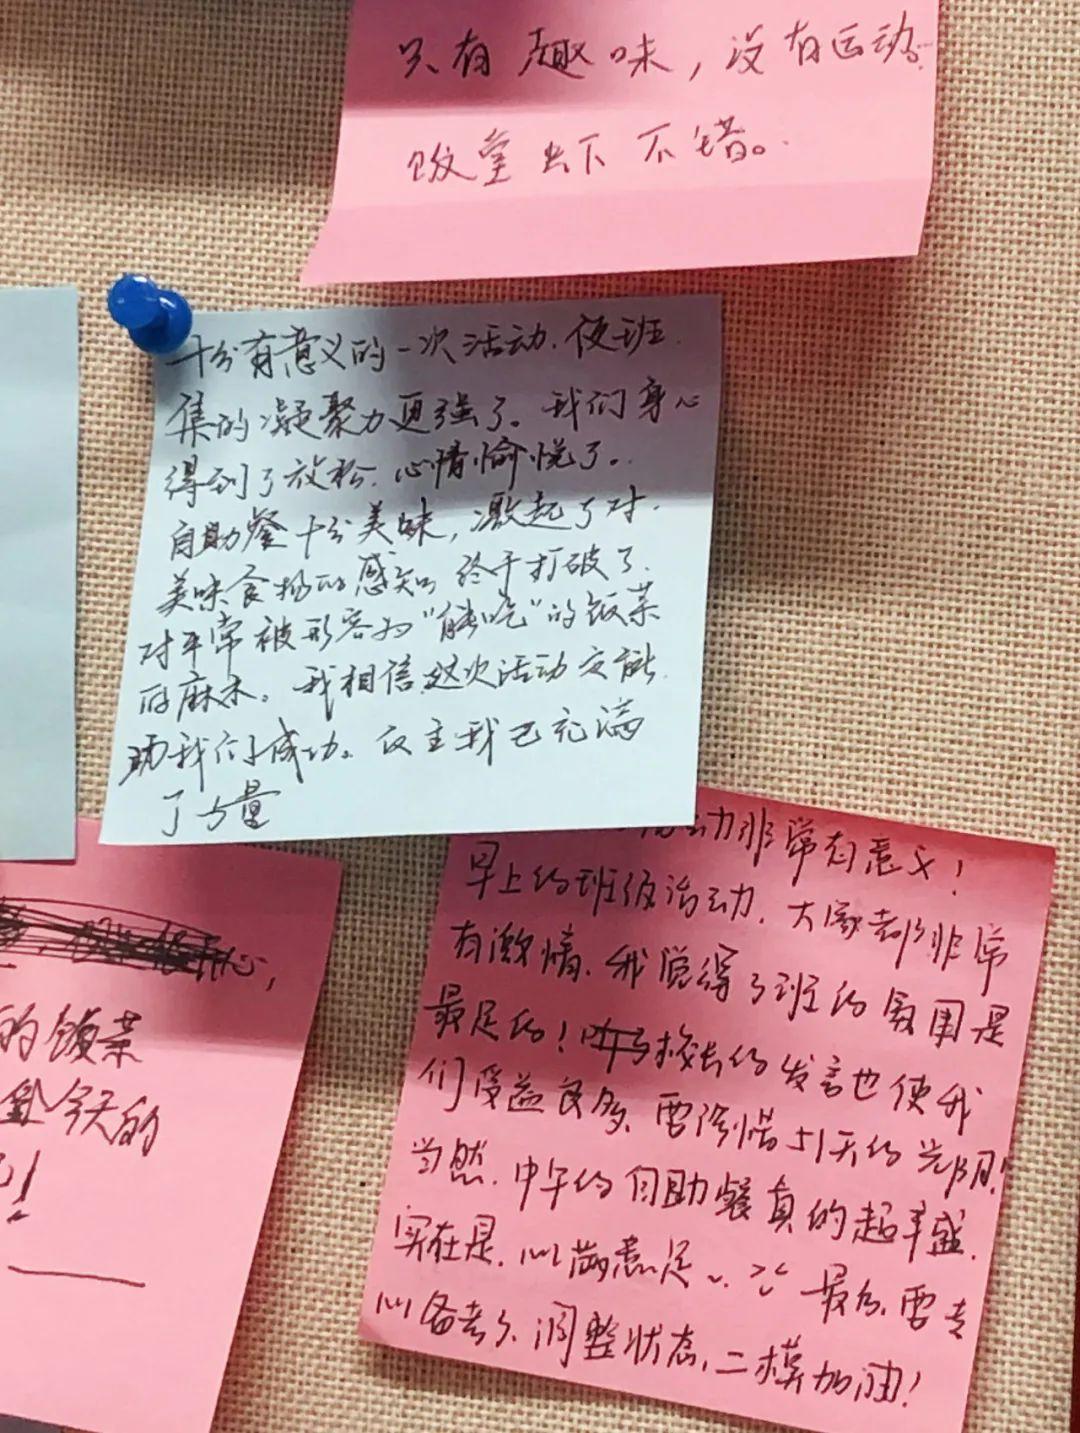 只有趣味，没有运动。
致室出下不错。
十分有意义的一次活动，使班
集的凝聚力更强了。我们身心
得到了放松，心情愉悦了。
自助餐十分美味，激起了对
美味食物的感知，终于打破了
对平常被形容为“能吃”的饭菜
的麻木。我相信这次活动定能
助我们成功。反正我已充满
了力量
活动非常有意义！
早上的班级活动，大家都非常
有激情，我觉得了班的氛围是
最足的！校长的发言也使我
们受益良多，要珍惜51天的光阴！
当然，中午的自助餐真的超丰盛，
实在是心满意足～
最后，要专
心备考了，调整状态，二模加油！
的饭菜
今天的
！